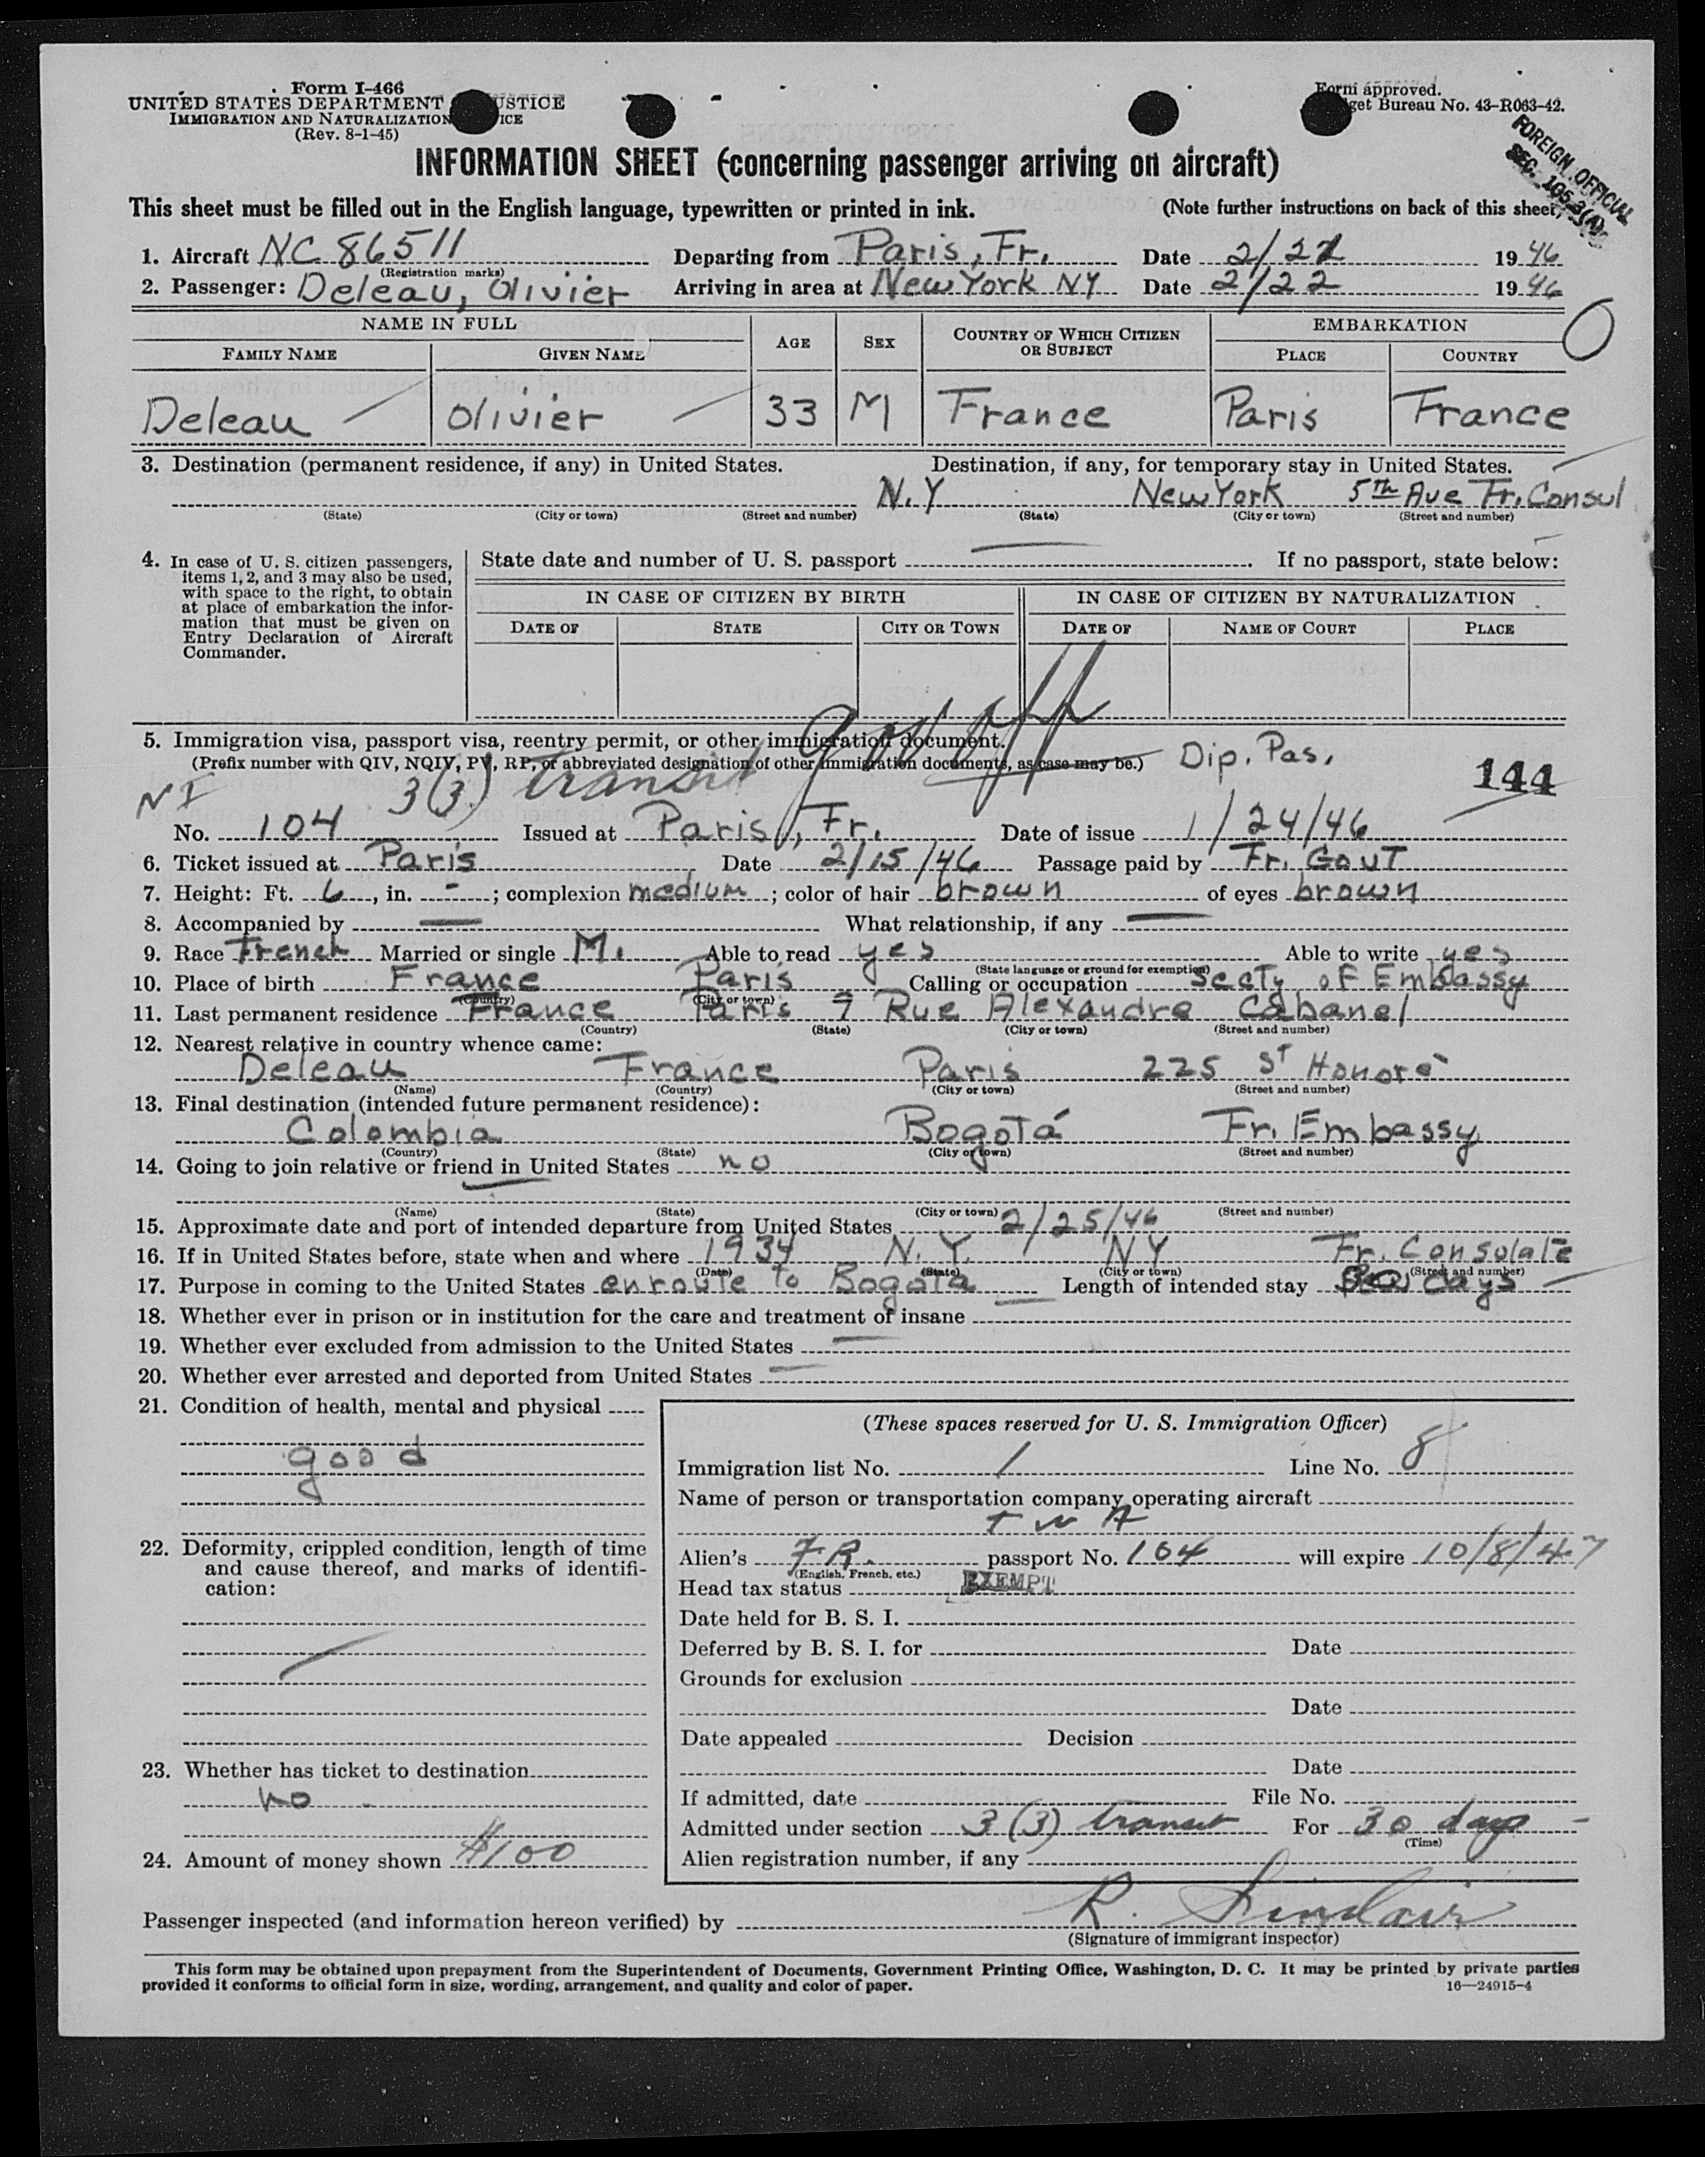 Form I-466
UNITED STATES DEPARTMENT USTICE
IMMIGRATION AND NATURALIZATION ICE
(Rev. 8-1-45)
Form approved.
get Bureau No. 43-R063-42.
FOREIGN OFFICIAL
SEC. 105.3(A)
INFORMATION SHEET (concerning passenger arriving on aircraft)
This sheet must be filled out in the English language, typewritten or printed in ink. (Note further instructions on back of this sheet)
1. Aircraft NC 86511 Departing from Paris, Fr. Date 2/22 1946
(Registration marks)
2. Passenger: Deleau, Olivier Arriving in area at New York NY Date 2/22 1946
NAME IN FULL AGE SEX COUNTRY OF WHICH CITIZEN OR SUBJECT EMBARKATION
FAMILY NAME GIVEN NAME PLACE COUNTRY
Deleau Olivier 33 M France Paris France
3. Destination (permanent residence, if any) in United States. Destination, if any, for temporary stay in United States.
N.Y New York 5th Ave Fr. Consul
(State) (City or town) (Street and number) (State) (City or town) (Street and number)
4. In case of U. S. citizen passengers, items 1, 2, and 3 may also be used, with space to the right, to obtain at place of embarkation the information that must be given on Entry Declaration of Aircraft Commander.
State date and number of U. S. passport . If no passport, state below:
IN CASE OF CITIZEN BY BIRTH IN CASE OF CITIZEN BY NATURALIZATION
DATE OF STATE CITY OR TOWN DATE OF NAME OF COURT PLACE
5. Immigration visa, passport visa, reentry permit, or other immigration document.
(Prefix number with QIV, NQIV, PV, RP, or abbreviated designation of other immigration documents, as case may be.) Dip. Pas.
144
NI 3(3) transit
No. 104 Issued at Paris, Fr. Date of issue 1/24/46
6. Ticket issued at Paris Date 2/15/46 Passage paid by Fr. Govt
7. Height: Ft. 6, in. -; complexion medium; color of hair brown of eyes brown
8. Accompanied by — What relationship, if any —
9. Race French Married or single M. Able to read yes Able to write yes
(State language or ground for exemption)
10. Place of birth France Paris Calling or occupation Secty of Embassy
(Country) (City or town)
11. Last permanent residence France Paris 9 Rue Alexandre Cabanel
(Country) (State) (City or town) (Street and number)
12. Nearest relative in country whence came:
Deleau France Paris 225 St Honoré
(Name) (Country) (City or town) (Street and number)
13. Final destination (intended future permanent residence):
Colombia Bogotá Fr. Embassy
(Country) (State) (City or town) (Street and number)
14. Going to join relative or friend in United States no
(Name) (State) (City or town) (Street and number)
15. Approximate date and port of intended departure from United States 2/25/46
16. If in United States before, state when and where 1934 N.Y. NY Fr. Consulate
(Date) (State) (City or town) (Street and number)
17. Purpose in coming to the United States enroute to Bogota Length of intended stay days
18. Whether ever in prison or in institution for the care and treatment of insane
19. Whether ever excluded from admission to the United States
20. Whether ever arrested and deported from United States
21. Condition of health, mental and physical
good
22. Deformity, crippled condition, length of time and cause thereof, and marks of identification:
23. Whether has ticket to destination
no
24. Amount of money shown $100
(These spaces reserved for U. S. Immigration Officer)
Immigration list No. 1 Line No. 8
Name of person or transportation company operating aircraft
TWA
Alien's FR. passport No. 104 will expire 10/8/47
(English, French, etc.)
Head tax status EXEMPT
Date held for B. S. I.
Deferred by B. S. I. for Date
Grounds for exclusion
Date
Date appealed Decision
Date
If admitted, date File No.
Admitted under section 3(3) transit For 30 days
(Time)
Alien registration number, if any
Passenger inspected (and information hereon verified) by R. Sinclair
(Signature of immigrant inspector)
This form may be obtained upon prepayment from the Superintendent of Documents, Government Printing Office, Washington, D. C. It may be printed by private parties
provided it conforms to official form in size, wording, arrangement, and quality and color of paper. 16—24915-4